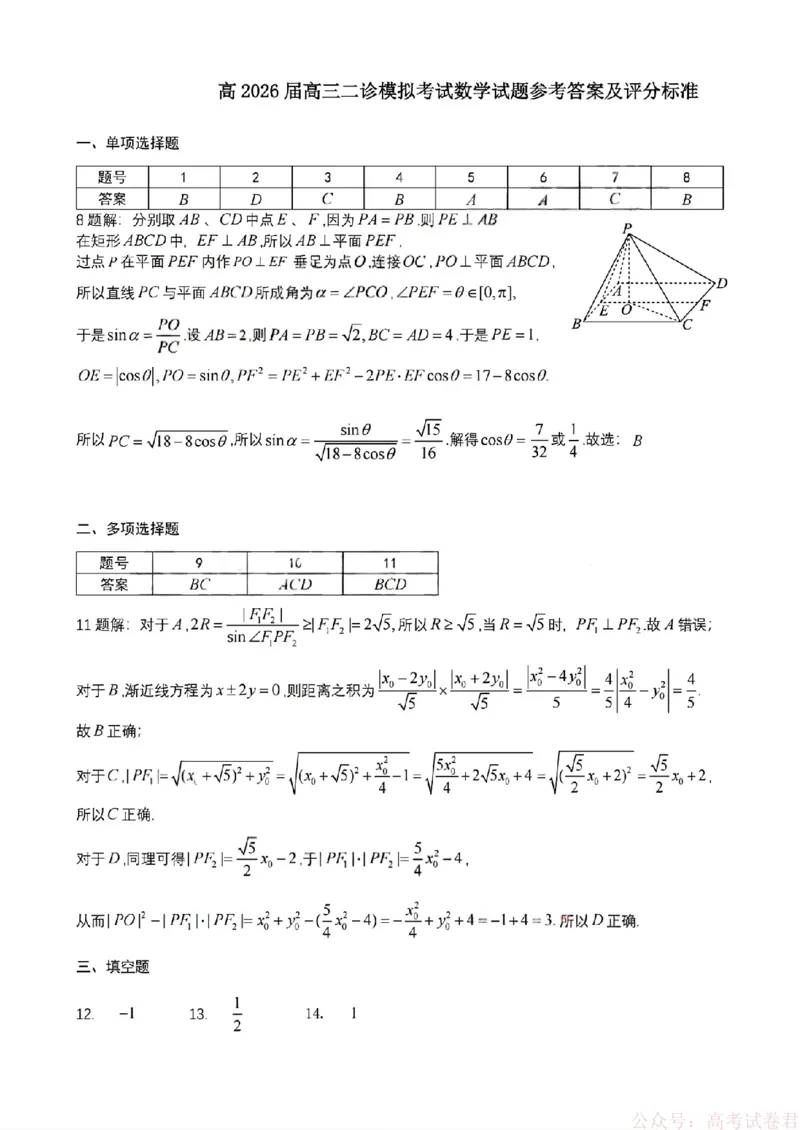 高 2026 届高三二诊模拟考试数学试题参考答案及评分标准
一、单项选择题
题号 1 2 3 4 5 6 7 8
答案 B D C B A A C B
8 题解：分别取 AB 、 CD 中点 E 、 F ,因为 PA = PB .则 PE ⊥ AB
在矩形 ABCD 中, EF ⊥ AB ,所以 AB ⊥ 平面 PEF ,
过点 P 在平面 PEF 内作 PO ⊥ EF 垂足为点 O ,连接 OC , PO ⊥ 平面 ABCD ,
所以直线 PC 与平面 ABCD 所成角为 α = ∠PCO , ∠PEF = θ ∈ [0, π],
于是 sin α = PO/PC .设 AB = 2 ,则 PA = PB = √2, BC = AD = 4 .于是 PE = 1,
OE = |cosθ|, PO = sinθ, PF² = PE² + EF² − 2PE·EF cosθ = 17 − 8cosθ.
P
A
D
E
O
F
B
C
所以 PC = √(18 − 8cosθ) ,所以 sin α = sinθ/√(18 − 8cosθ) = √15/16 .解得 cosθ = 7/32 或 1/4 .故选: B
二、多项选择题
题号 9 10 11
答案 BC ACD BCD
11 题解：对于 A , 2R = |F₁F₂|/sin∠F₁PF₂ ≥ |F₁F₂| = 2√5, 所以 R ≥ √5 ,当 R = √5 时, PF₁ ⊥ PF₂ .故 A 错误;
对于 B ,渐近线方程为 x ± 2y = 0 ,则距离之积为 |x₀ − 2y₀|/√5 × |x₀ + 2y₀|/√5 = |x₀² − 4y₀²|/5 = 4/5 |x₀²/4 − y₀²| = 4/5 .
故 B 正确;
对于 C , |PF₁| = √((x₀ + √5)² + y₀²) = √((x₀ + √5)² + x₀²/4 − 1) = √(5x₀²/4 + 2√5x₀ + 4) = √((√5/2 x₀ + 2)²) = √5/2 x₀ + 2 ,
所以 C 正确.
对于 D ,同理可得 |PF₂| = √5/2 x₀ − 2 ,于 |PF₁|·|PF₂| = 5/4 x₀² − 4 ,
从而 |PO|² − |PF₁|·|PF₂| = x₀² + y₀² − (5/4 x₀² − 4) = −x₀²/4 + y₀² + 4 = −1 + 4 = 3. 所以 D 正确.
三、填空题
12. −1 13. 1/2 14. 1
公众号：高考试卷君